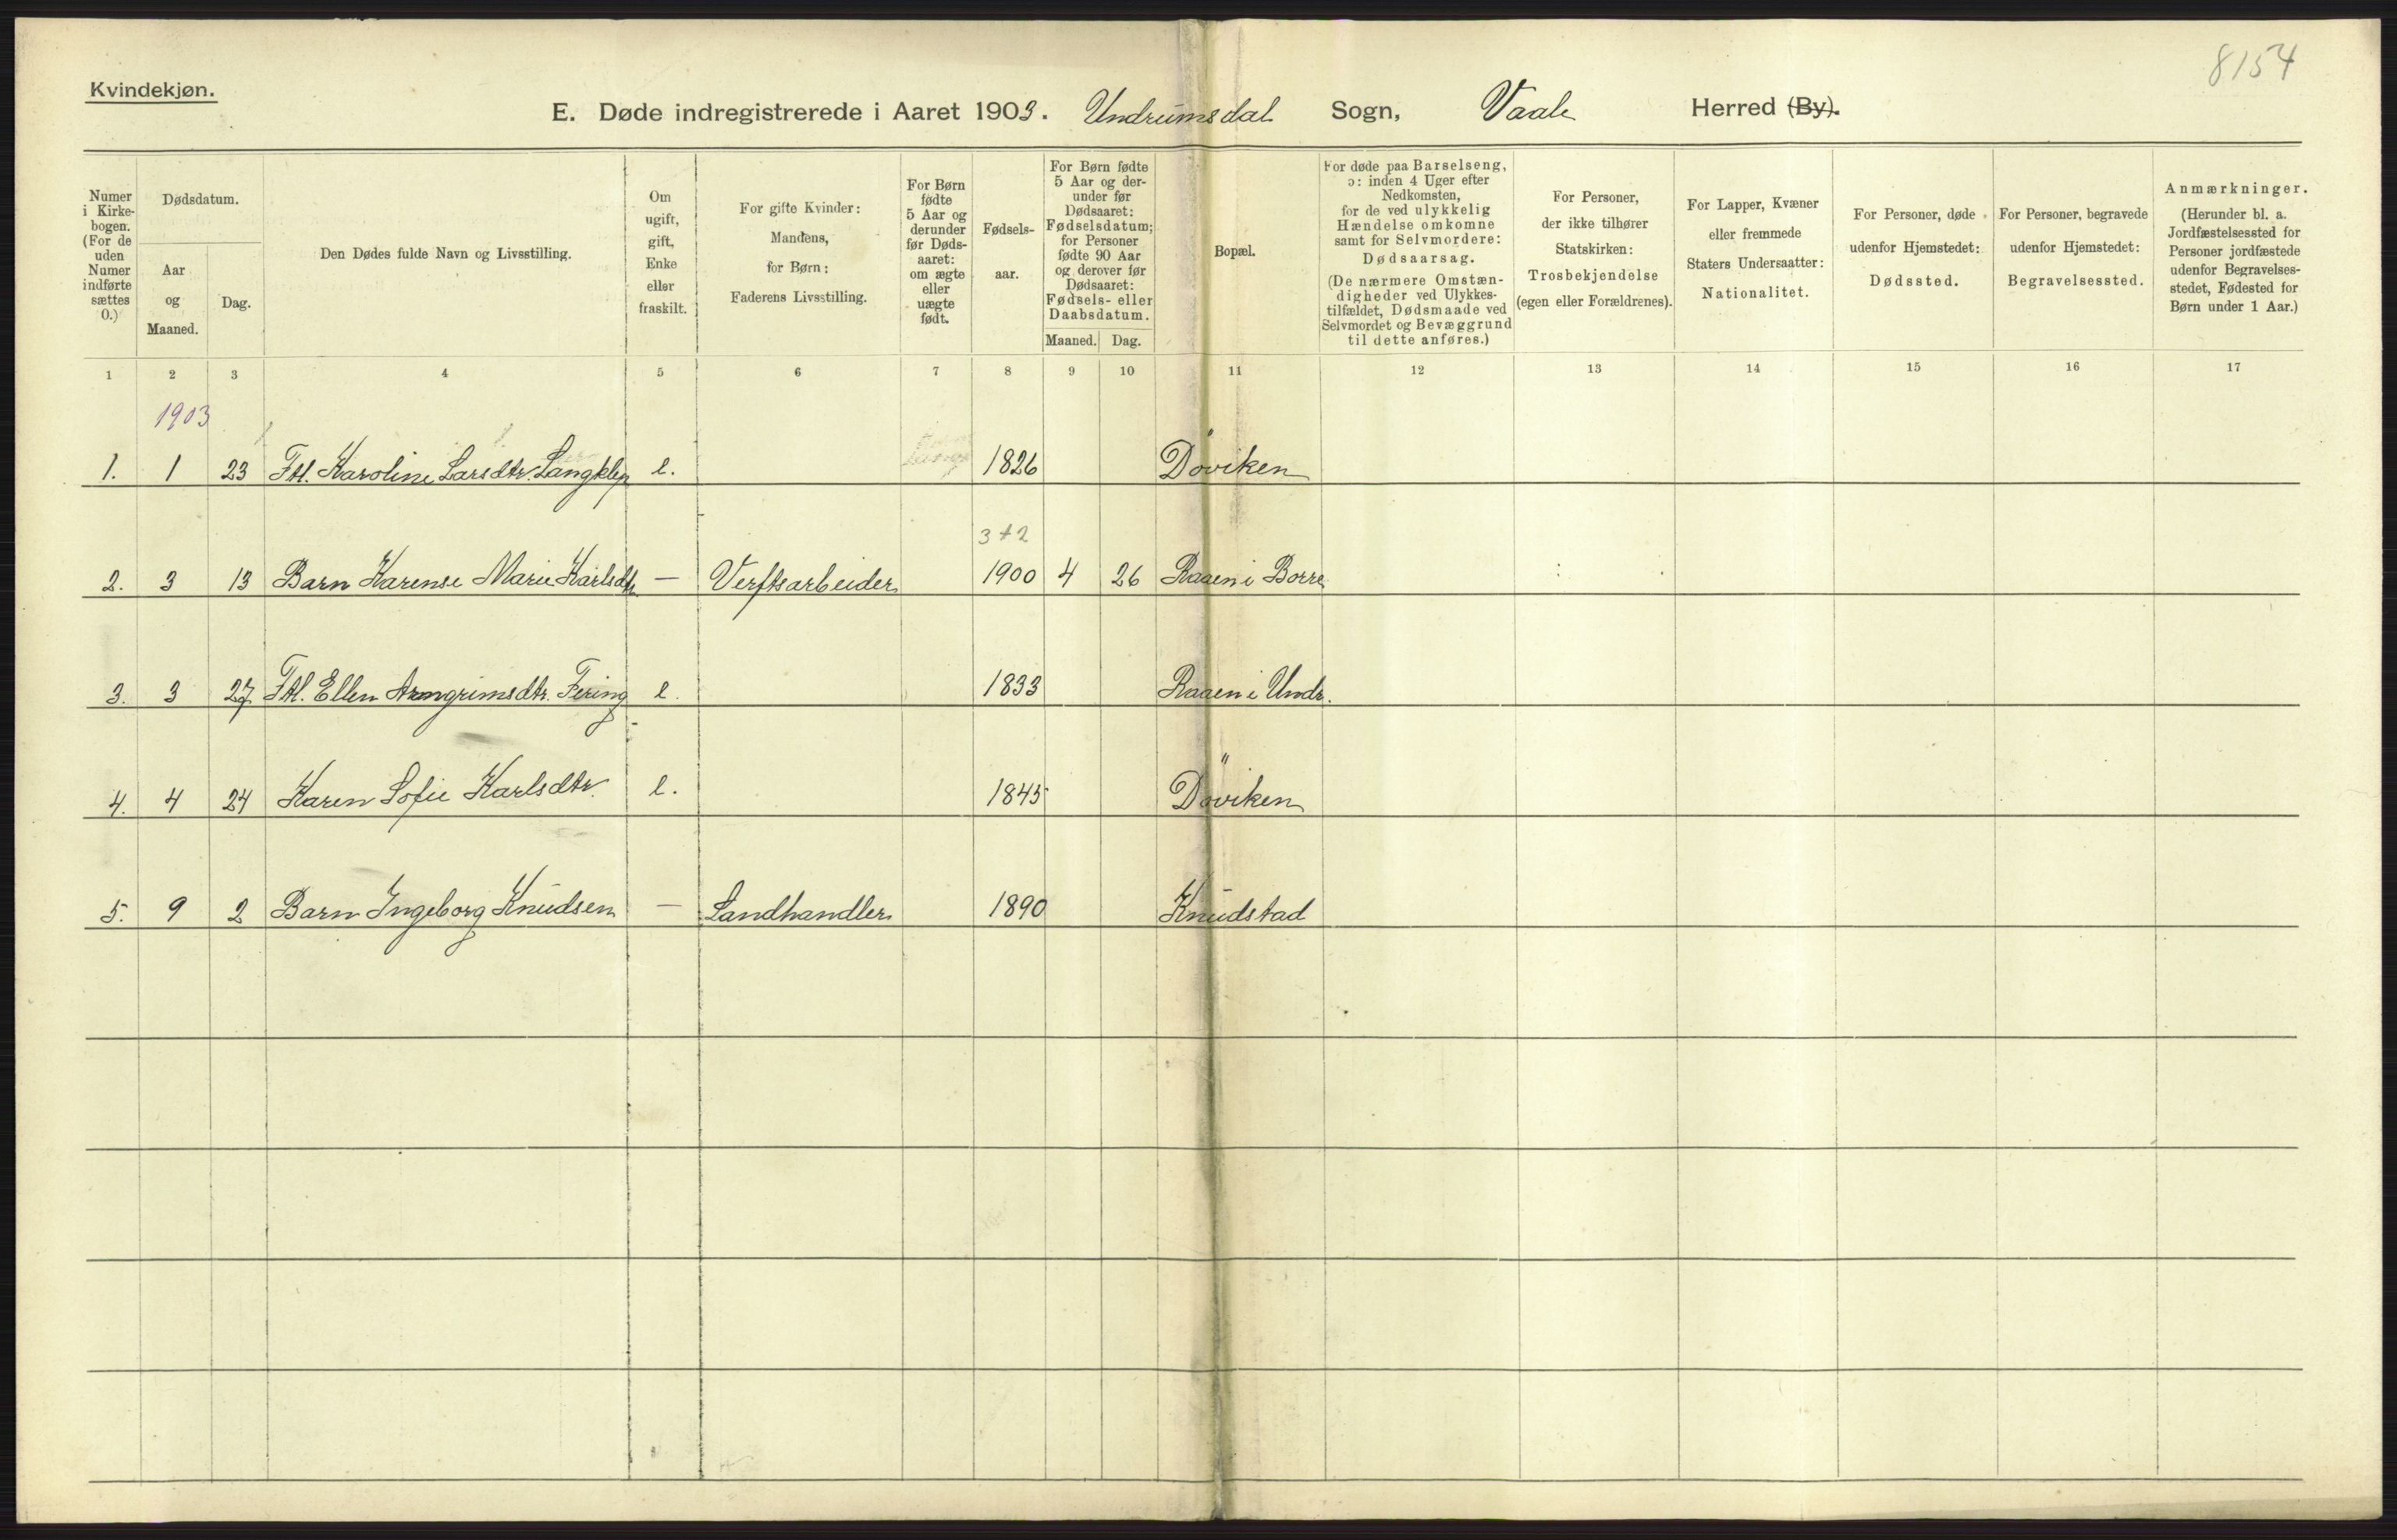 8154
Kvindekjøn.
E. Døde indregistrerede i Aaret 1903. Undrumsdal Sogn, Vaale Herred (By).
Numer i Kirke-bogen. (For de uden Numer indførte sættes 0.)
Dødsdatum.
Aar og Maaned.
Dag.
Den Dødes fulde Navn og Livsstilling.
Om ugift, gift, Enke eller fraskilt.
For gifte Kvinder: Mandens, for Børn: Faderens Livsstilling.
For Børn fødte 5 Aar og derunder før Døds-aaret: om ægte eller uægte født.
Fødsels-aar.
For Børn fødte 5 Aar og der-under før Dødsaaret: Fødselsdatum; for Personer fødte 90 Aar og derover før Dødsaaret: Fødsels- eller Daabsdatum.
Maaned. Dag.
Bopæl.
For døde paa Barselseng, ɔ: inden 4 Uger efter Nedkomsten, for de ved ulykkelig Hændelse omkomne samt for Selvmordere: Dødsaarsag. (De nærmere Omstæn-digheder ved Ulykkes-tilfældet, Dødsmaade ved Selvmordet og Bevæggrund til dette anføres.)
For Personer, der ikke tilhører Statskirken: Trosbekjendelse (egen eller Forældrenes).
For Lapper, Kvæner eller fremmede Staters Undersaatter: Nationalitet.
For Personer, døde udenfor Hjemstedet: Dødssted.
For Personer, begravede udenfor Hjemstedet: Begravelsessted.
Anmærkninger. (Herunder bl. a. Jordfæstelsessted for Personer jordfæstede udenfor Begravelses-stedet, Fødested for Børn under 1 Aar.)
1 2 3 4 5 6 7 8 9 10 11 12 13 14 15 16 17
1903
1. 1 23 Ftl. Karoline Larsdtr. Langklep e. 1826 Döviken
3 + 2
2. 3 13 Barn Karense Marie Karlsdtr. — Verftsarbeider 1900 4 26 Raaen i Borre
3. 3 27 Ftl. Ellen Arngrimsdtr. Fering e. 1833 Raaen i Undr.
4. 4 24 Karen Sofie Karlsdtr. e. 1845 Döviken
5. 9 2 Barn Ingeborg Knudsen — Landhandler 1890 Knudstad